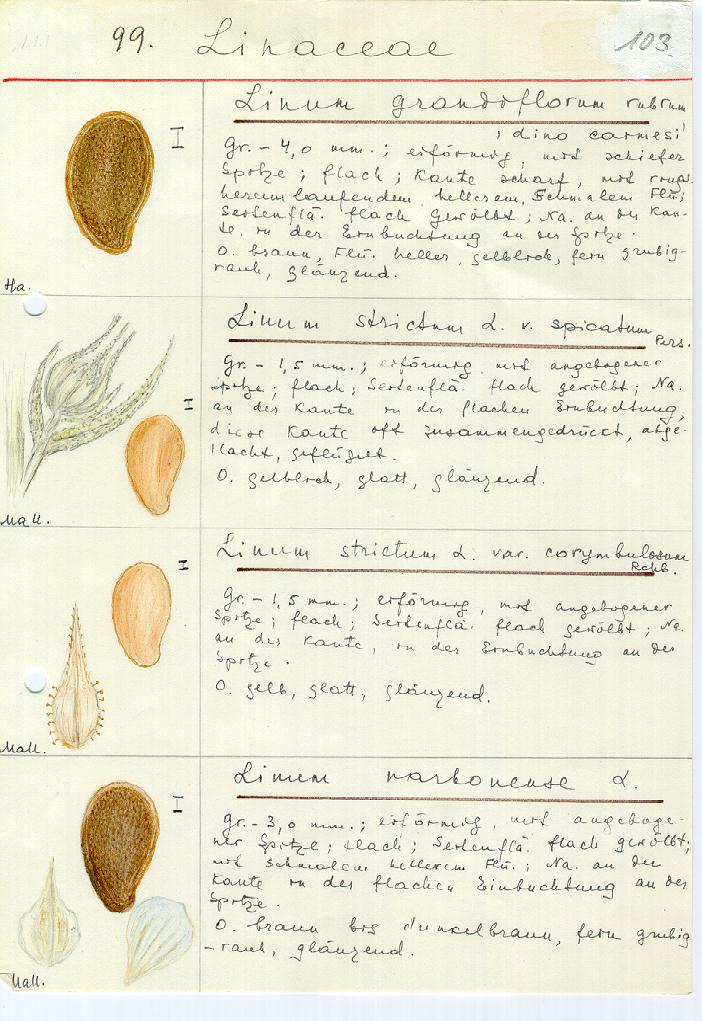 111 99. Linaceae 103
Linum grandiflorum rubrum
, dino carmesi'
Gr. - 4,0 mm.; eiförmig, mit schiefer
Spitze; flach; Kante scharf, mit rings-
herum laufendem, hellerem, schmalem Flü;
Seitenflä. flach gewölbt; Na. an der Kan-
te, in der Einbuchtung an der Spitze.
O. braun, Flü. heller, gelblich, fein grubig-
rauh, glänzend.
Ha.
Linum strictum L. v. spicatum
Pers.
Gr. - 1,5 mm.; eiförmig, mit angebogener
Spitze; flach; Seitenflä. flach gewölbt; Na.
an der Kante in der flachen Einbuchtung,
diese Kante oft zusammengedrückt, abge-
flacht, geflügelt.
O. gelblich, glatt, glänzend.
Mall.
Linum strictum L. var. corymbulosum
Rchb.
Gr. - 1,5 mm.; eiförmig, mit angebogener
Spitze; flach; Seitenflä. flach gewölbt; Na.
an der Kante, in der Einbuchtung an der
Spitze.
O. gelb, glatt, glänzend.
Mall.
Linum narbonense L.
Gr. - 3,0 mm.; eiförmig, mit angeboge-
ner Spitze; flach; Seitenflä. flach gewölbt;
mit schmalem hellerem Flü.; Na. an der
Kante in der flachen Einbuchtung an der
Spitze.
O. braun bis dunkelbraun, fein grubig
-rauh, glänzend.
Mall.